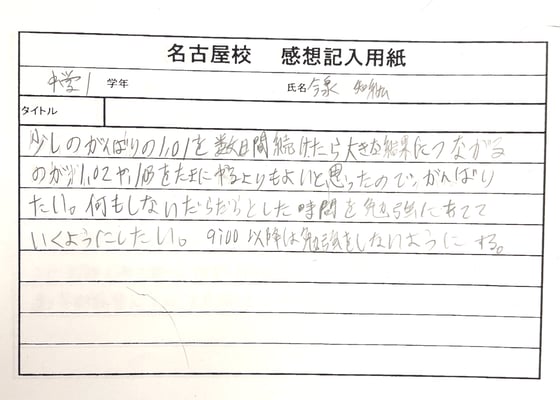 名古屋校 感想記入用紙
中学1 学年 氏名 今泉
タイトル
少しのがんばりの1.01を数日間続けたら大きな結果につながる
のが、1.02や1.03をたまにやるよりもよいと思ったので、がんばり
たい。何もしないだらだらとした時間を勉強にあてて
いくようにしたい。9:00以降は勉強をしないようにする。